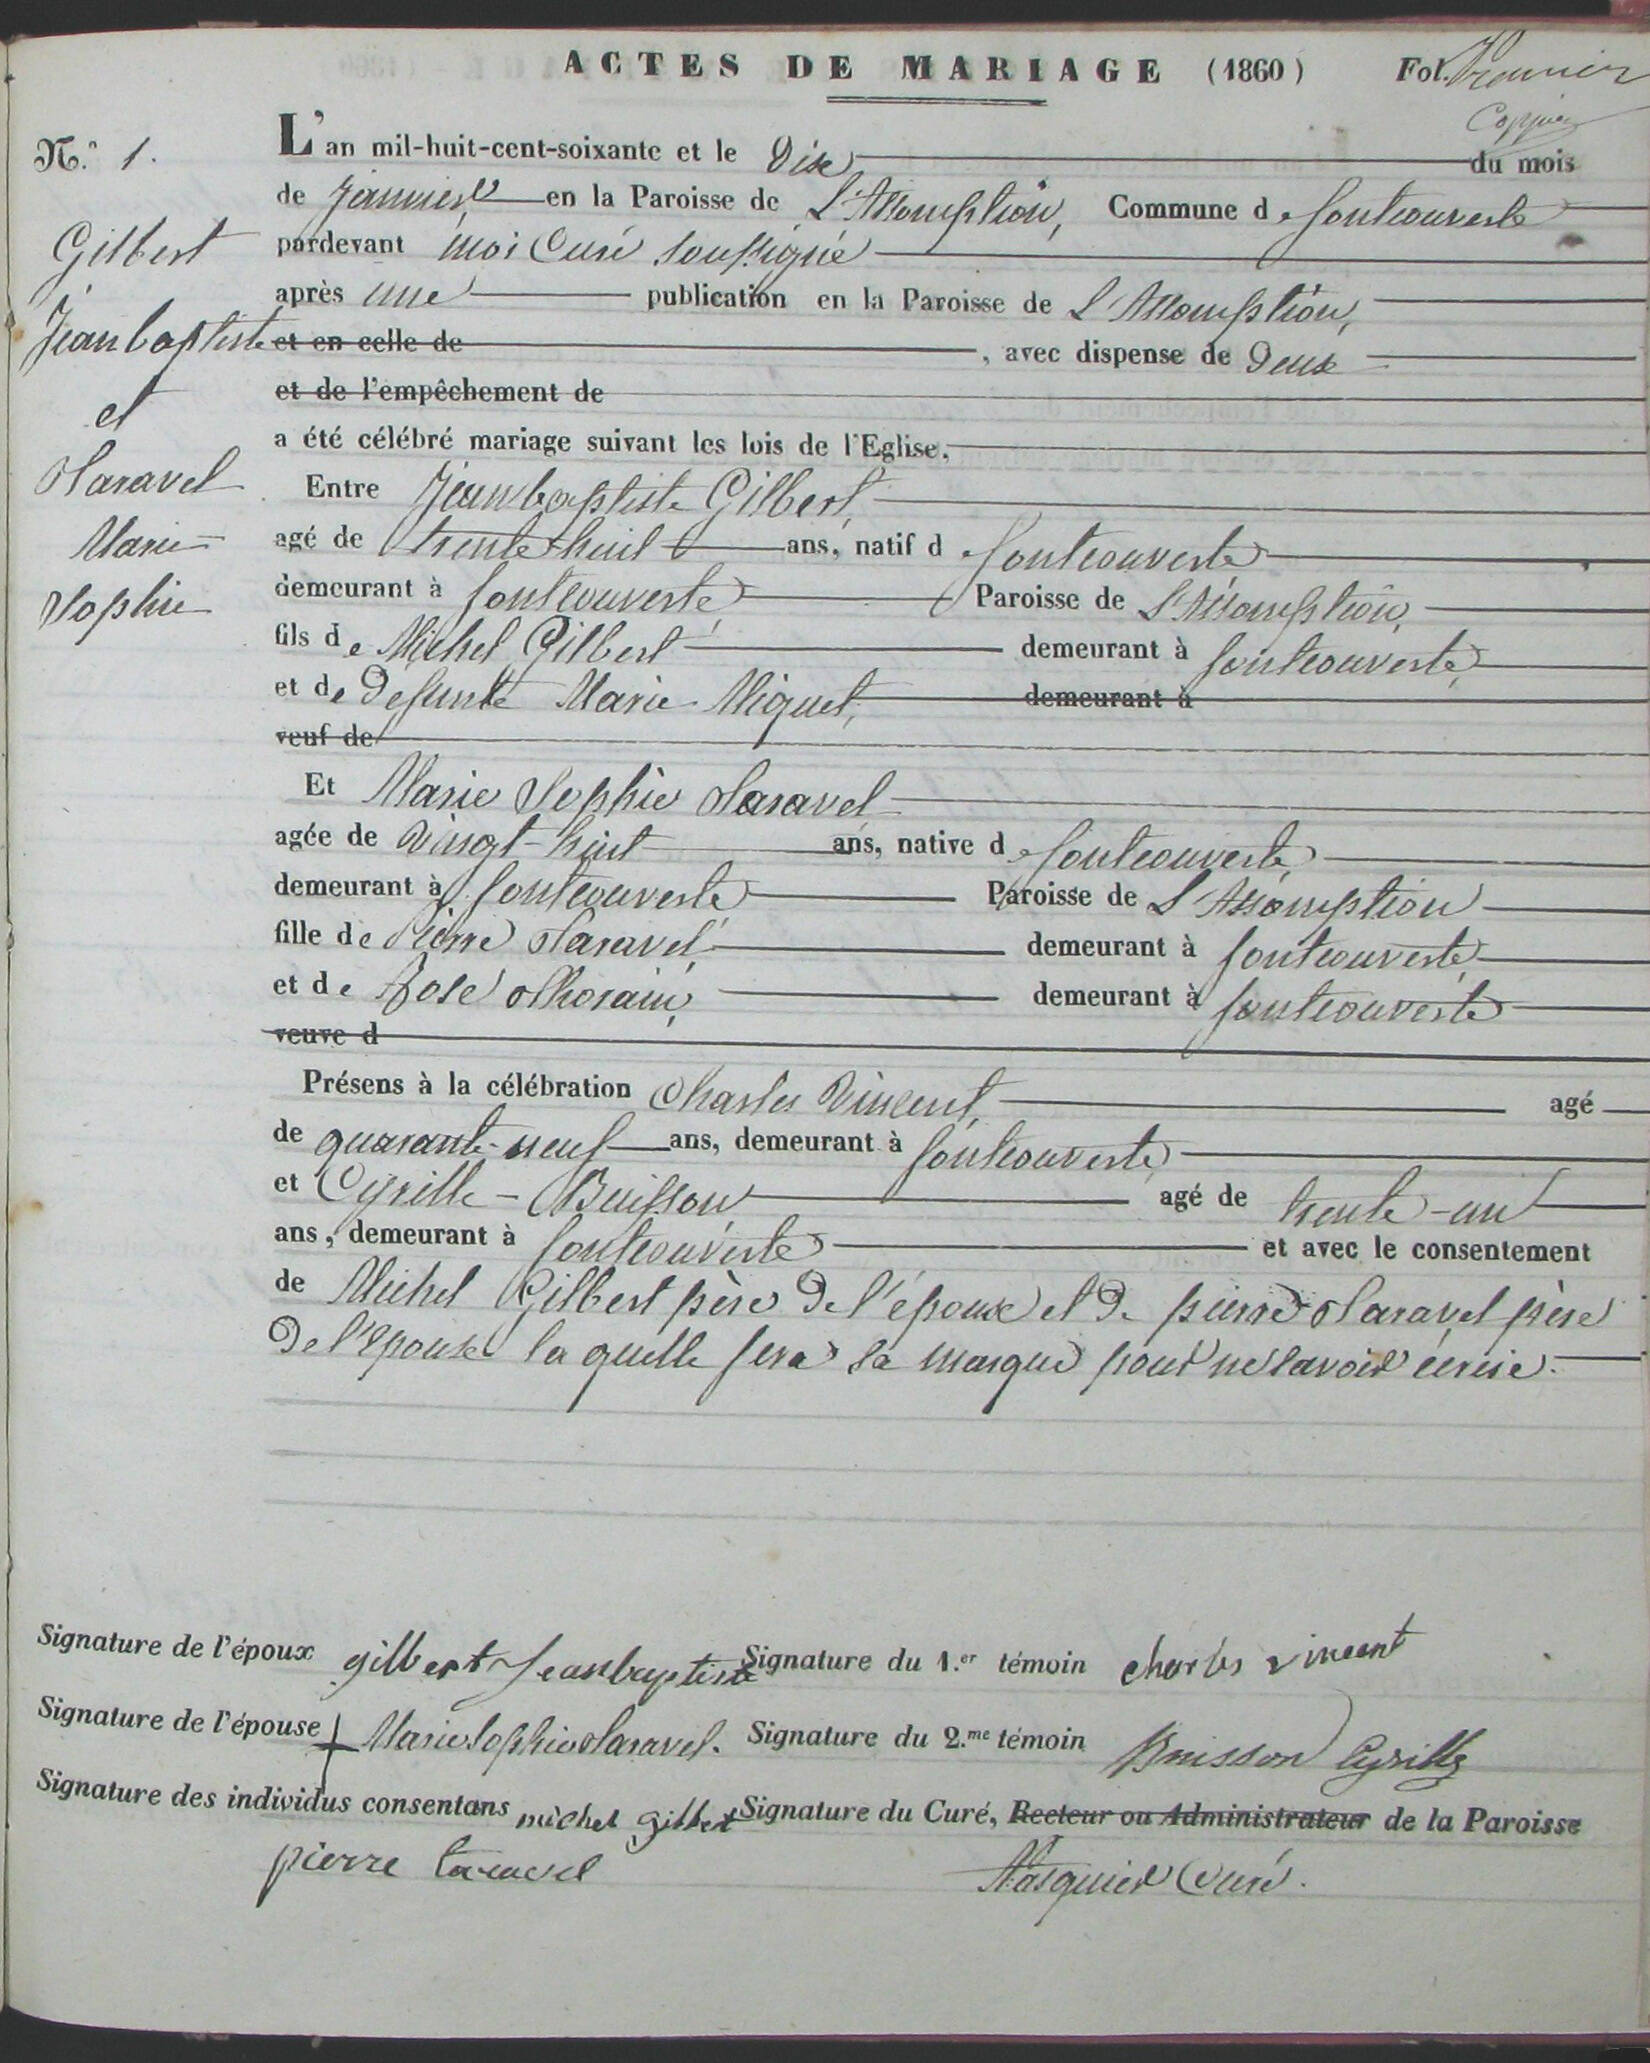 ACTES DE MARIAGE (1860) Fol. Premier
N.° 1.
L'an mil-huit-cent-soixante et le Dix du mois
de Janvier en la Paroisse de L'Assomption, Commune de fontcouverte
pardevant moi Curé soussigné
après une publication en la Paroisse de L'Assomption,
et en celle de , avec dispense de Deux
et de l'empêchement de
a été célébré mariage suivant les lois de l'Eglise,
Gilbert
Jeanbaptiste
et
Taravel
Marie
Sophie
Entre Jeanbaptiste Gilbert,
agé de trente huit ans, natif de fontcouverte
demeurant à fontcouverte, Paroisse de L'Assomption,
fils de Michel Gilbert demeurant à fontcouverte,
et de Defunte Marie Miquet, demeurant à
veuf de
Et Marie Sophie Taravel
agée de vingt-huit ans, native de fontcouverte,
demeurant à fontcouverte Paroisse de L'Assomption
fille de Pierre Taravel, demeurant à fontcouverte,
et de Rose demeurant à fontcouverte
veuve d
Présens à la célébration Charles Vincent, agé
de quarante-neuf ans, demeurant à fontcouverte,
et Cyrille - Buisson agé de trente-un
ans, demeurant à fontcouverte, et avec le consentement
de Michel Gilbert père De l'époux et De pierre Taravel père
De l'épouse la quelle fera sa marque pour ne savoir écrire.
Signature de l'époux gilbert Jeanbaptiste Signature du 1.er témoin charles vincent
Signature de l'épouse + Marie Sophie Taravel. Signature du 2.me témoin Buisson Cyrille
Signature des individus consentans michel gilbert Signature du Curé, Recteur ou Administrateur de la Paroisse
pierre taravel Curé.